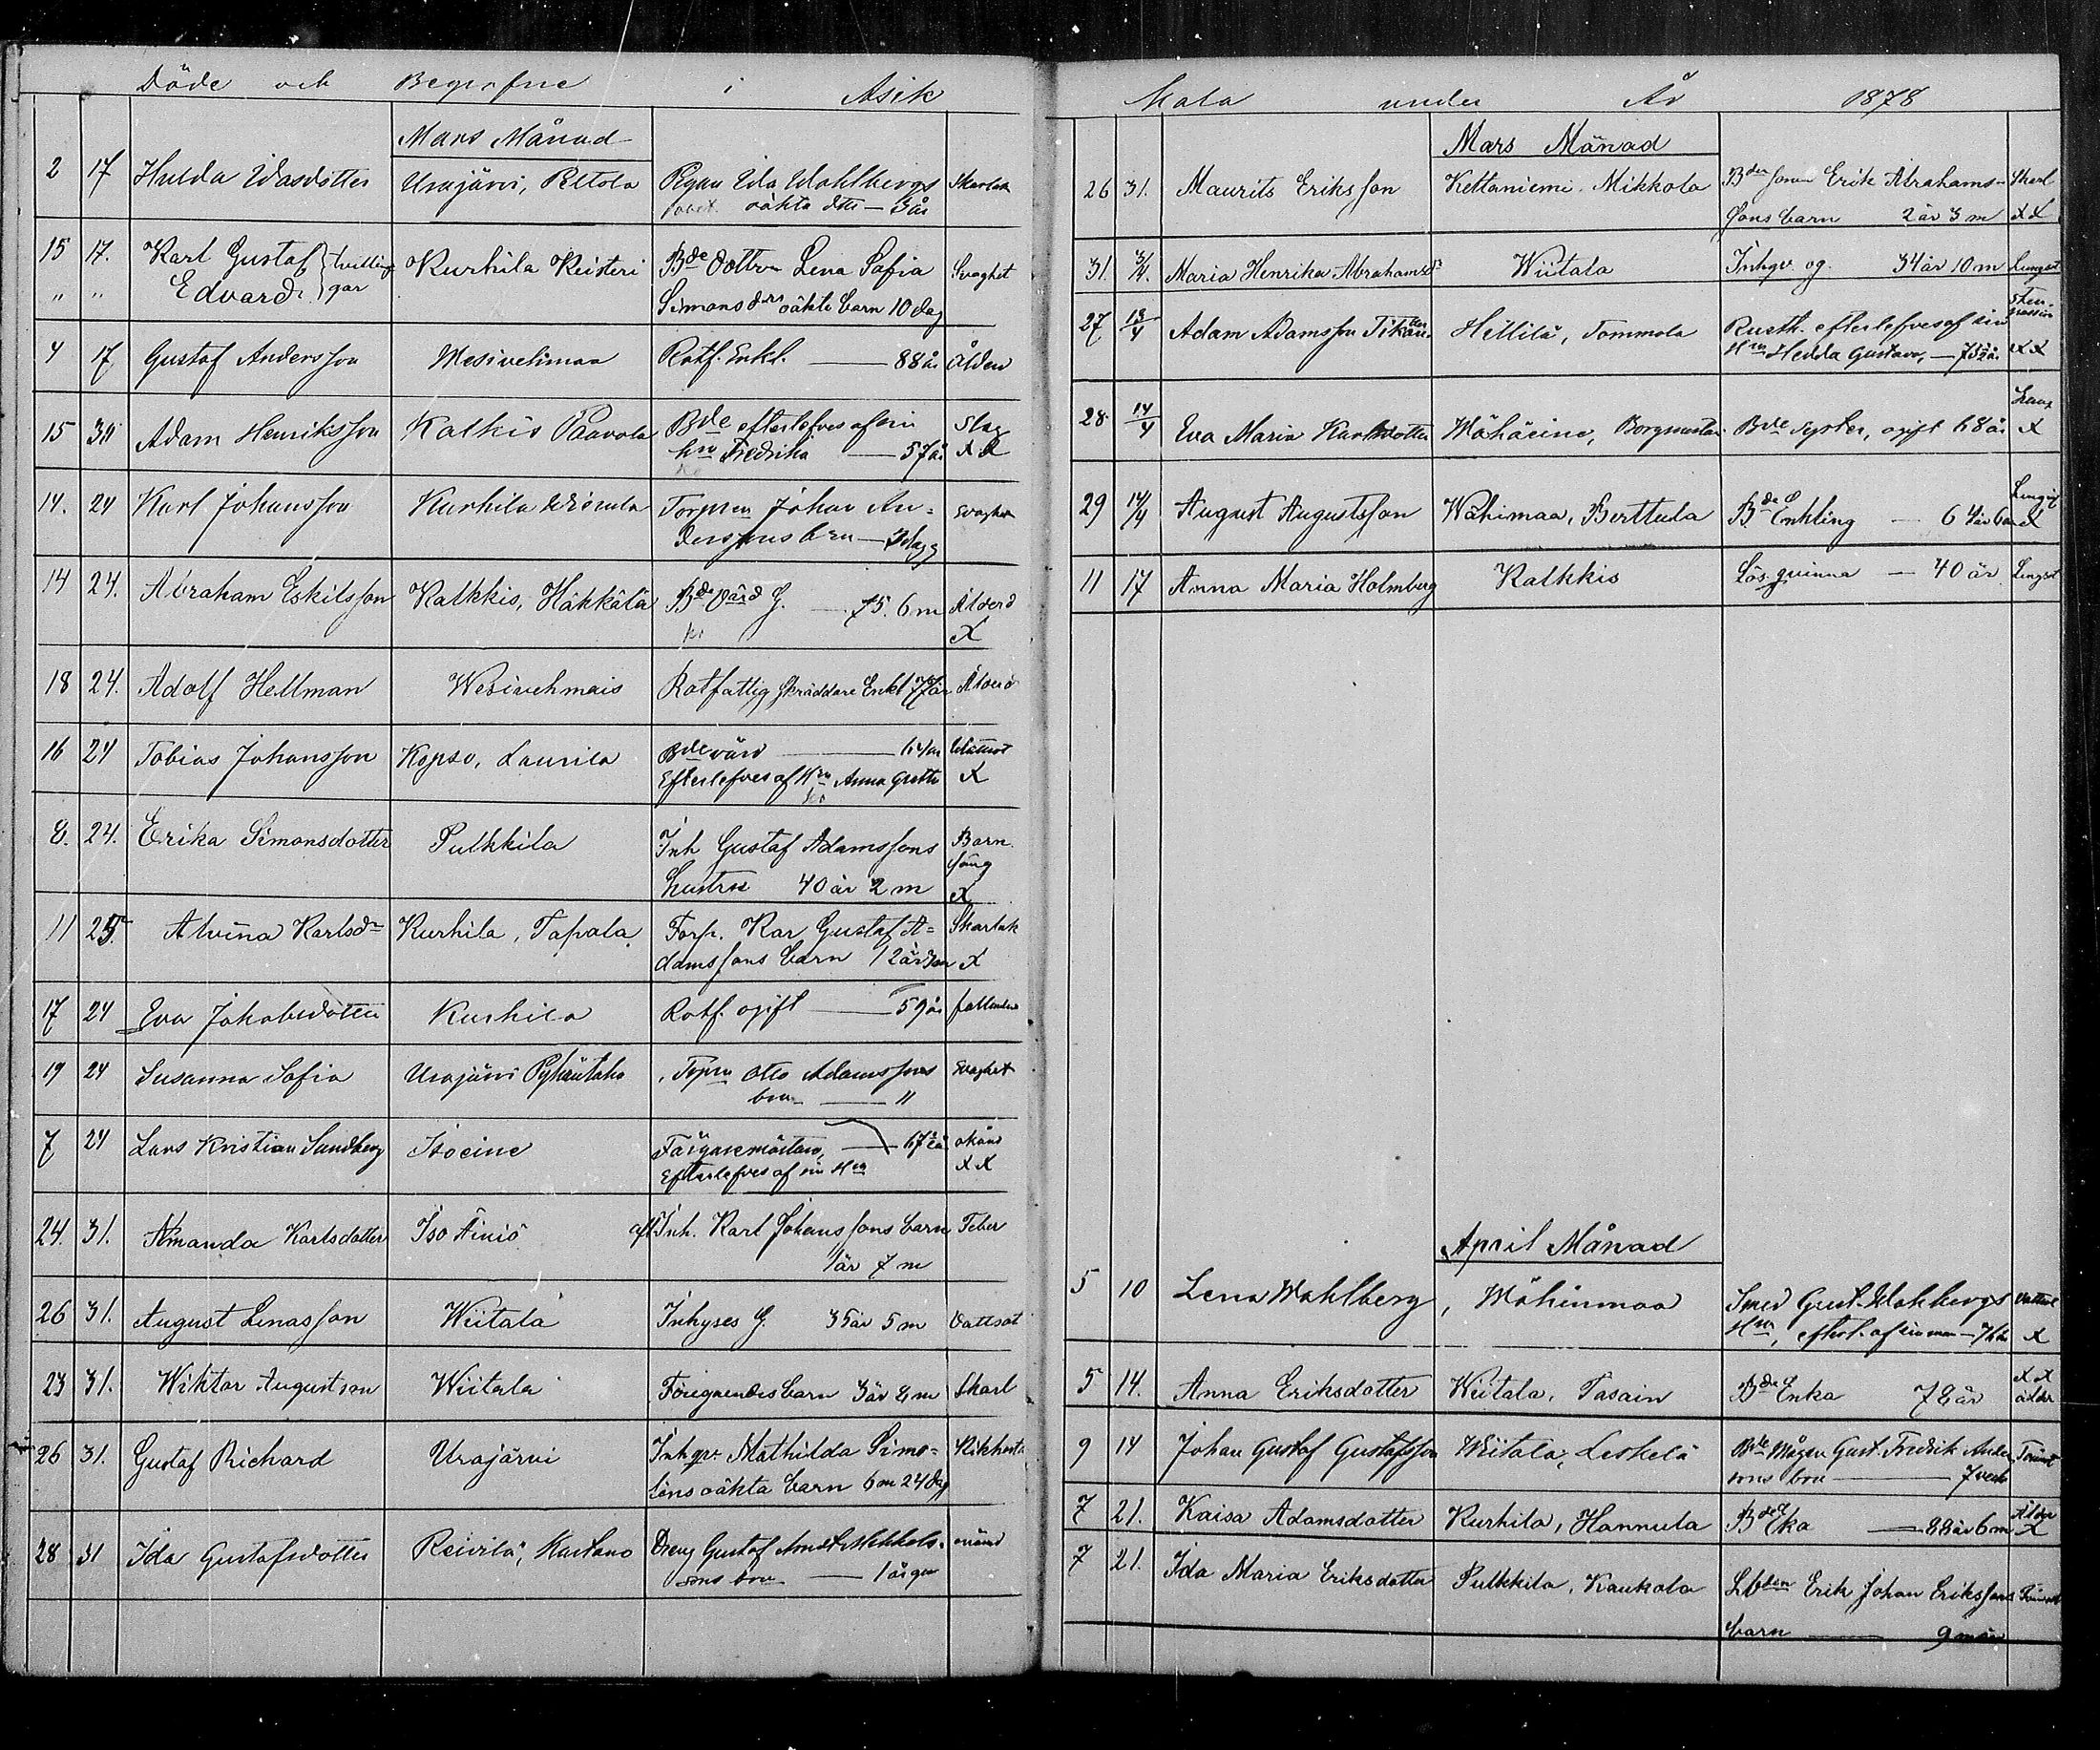 Döde och Begrafne i Asik
Mars Månad
2 17 Hulda Idasdotter Urajärvi, Peltola Pigan Ida Wahlbergs Skarlak
oäkta dtr — 3 år
15 17. Karl Gustaf } tvillin Kurhila Keisteri Bde dottren Lena Sofia Svaghet
" " Edvard } gar Simonsdrs oäkta barn 10 dag
4 17 Gustaf Andersson Wesivehmaa Rotf. Enkl. — 88 år Ålderd
15 31 Adam Henriksson Kalkis Paavola Bde efterlefves af sin Slag
hru Fredrika — 57 år X X
14. 24 Karl Johansson Kurhila Torparen Johan An= Svaghet
derssons brn — dagg
14 24. Abraham Eskilsson Kalkkis, Häkkälä Bde Värd G. — 75. 6 m Ålderd
X
18 24. Adolf Hellman Wesivehmais Rotfattig Skräddare Enkl 77 år Ålderd
16 24 Tobias Johansson Kopso, Laurila Bde värd — 64 år Wattsot
Efterlefves af Hru Anna Greta X
8. 24. Erika Simonsdotter Pulkkila Inh Gustaf Adamssons Barn
hustru 40 år 2 m säng
X
11 25. Alvina Karlsdr Kurhila, Tapala Torp. Kar Gustaf A= Skarlak
damssons barn 12 år X
17 24 Eva Jakobsdotter Kurhila Rotf. ogift — 59 år fallande
19 24 Susanna Sofia Urajärvi Torpn Otto Adamssons Svaghet
brn — "
7 24 Lars Kristian Sundberg Isoeine Färgaremästare, — 67 år okänd
Efterlefves af sin Hru X X
24. 31. Amanda Karlsdotter Iso Äiniö afl. Inh. Karl Johanssons barn Feber
1 år 7 m
26 31. August Linasson Wiitala Inhyses G. 35 år 5 m Vattsot
23 31. Wiktor Augustson Wiitala Föregåendes barn 3 år 2 m Skarl
26 31. Gustaf Richard Urajärvi Inhqv. Mathilda Simo= Kikhosta
lins oäkta barn 6 m 24 dag
28 31 Ida Gustafsdotter Reivilä, Dreng Gustaf
sons brn — 1 år
Kala under År 1878
Mars Månad
26 31. Maurits Eriksson Kettaniemi. Mikkola Bde sonen Erik Abrahams- Skarl
sons barn 2 år 3 m X X
31. 3/4. Maria Henrika Abrahamsdr Wiitala Inhqv og. 34 år 10 m Lungsot
27 13/4 Adam Adamsson Hillilä, Tommola Rusth. efterlefves af sin Sten-passion
Hru Hedda Gustava, — 73 år X X
28. 14/4 Eva Maria Karlsdotter Mähäeine, Borgmästar Bde syster, ogift 68 år X
29 14/4 August Augustsson Wähimaa, Perttula Bde Enkling — 64 år 6 m X
11 17 Anna Maria Holmberg Kalkkis Lös. qvinna — 40 år Lungsot
April Månad
5 10 Lena Wahlberg, Wähinmaa Smed Gust. Wahlbergs Vattsot
Hru, efterl. af sin man — X
5 14. Anna Eriksdotter Wiitala, Tasain Bde Enka 78 år X X ålder
9 14 Johan Gustaf Gustafsson Wiitala, Leskelä Bde Mågen Gust. Fredrik Anders
sons brn — 7 veck
7 21. Kaisa Adamsdotter Kurhila, Hannula Bde Eka — 88 år 6 m Ålder X
7 21. Ida Maria Eriksdotter Pulkkila, Kaukola Erik Johan Erikssons
barn — 9 mån